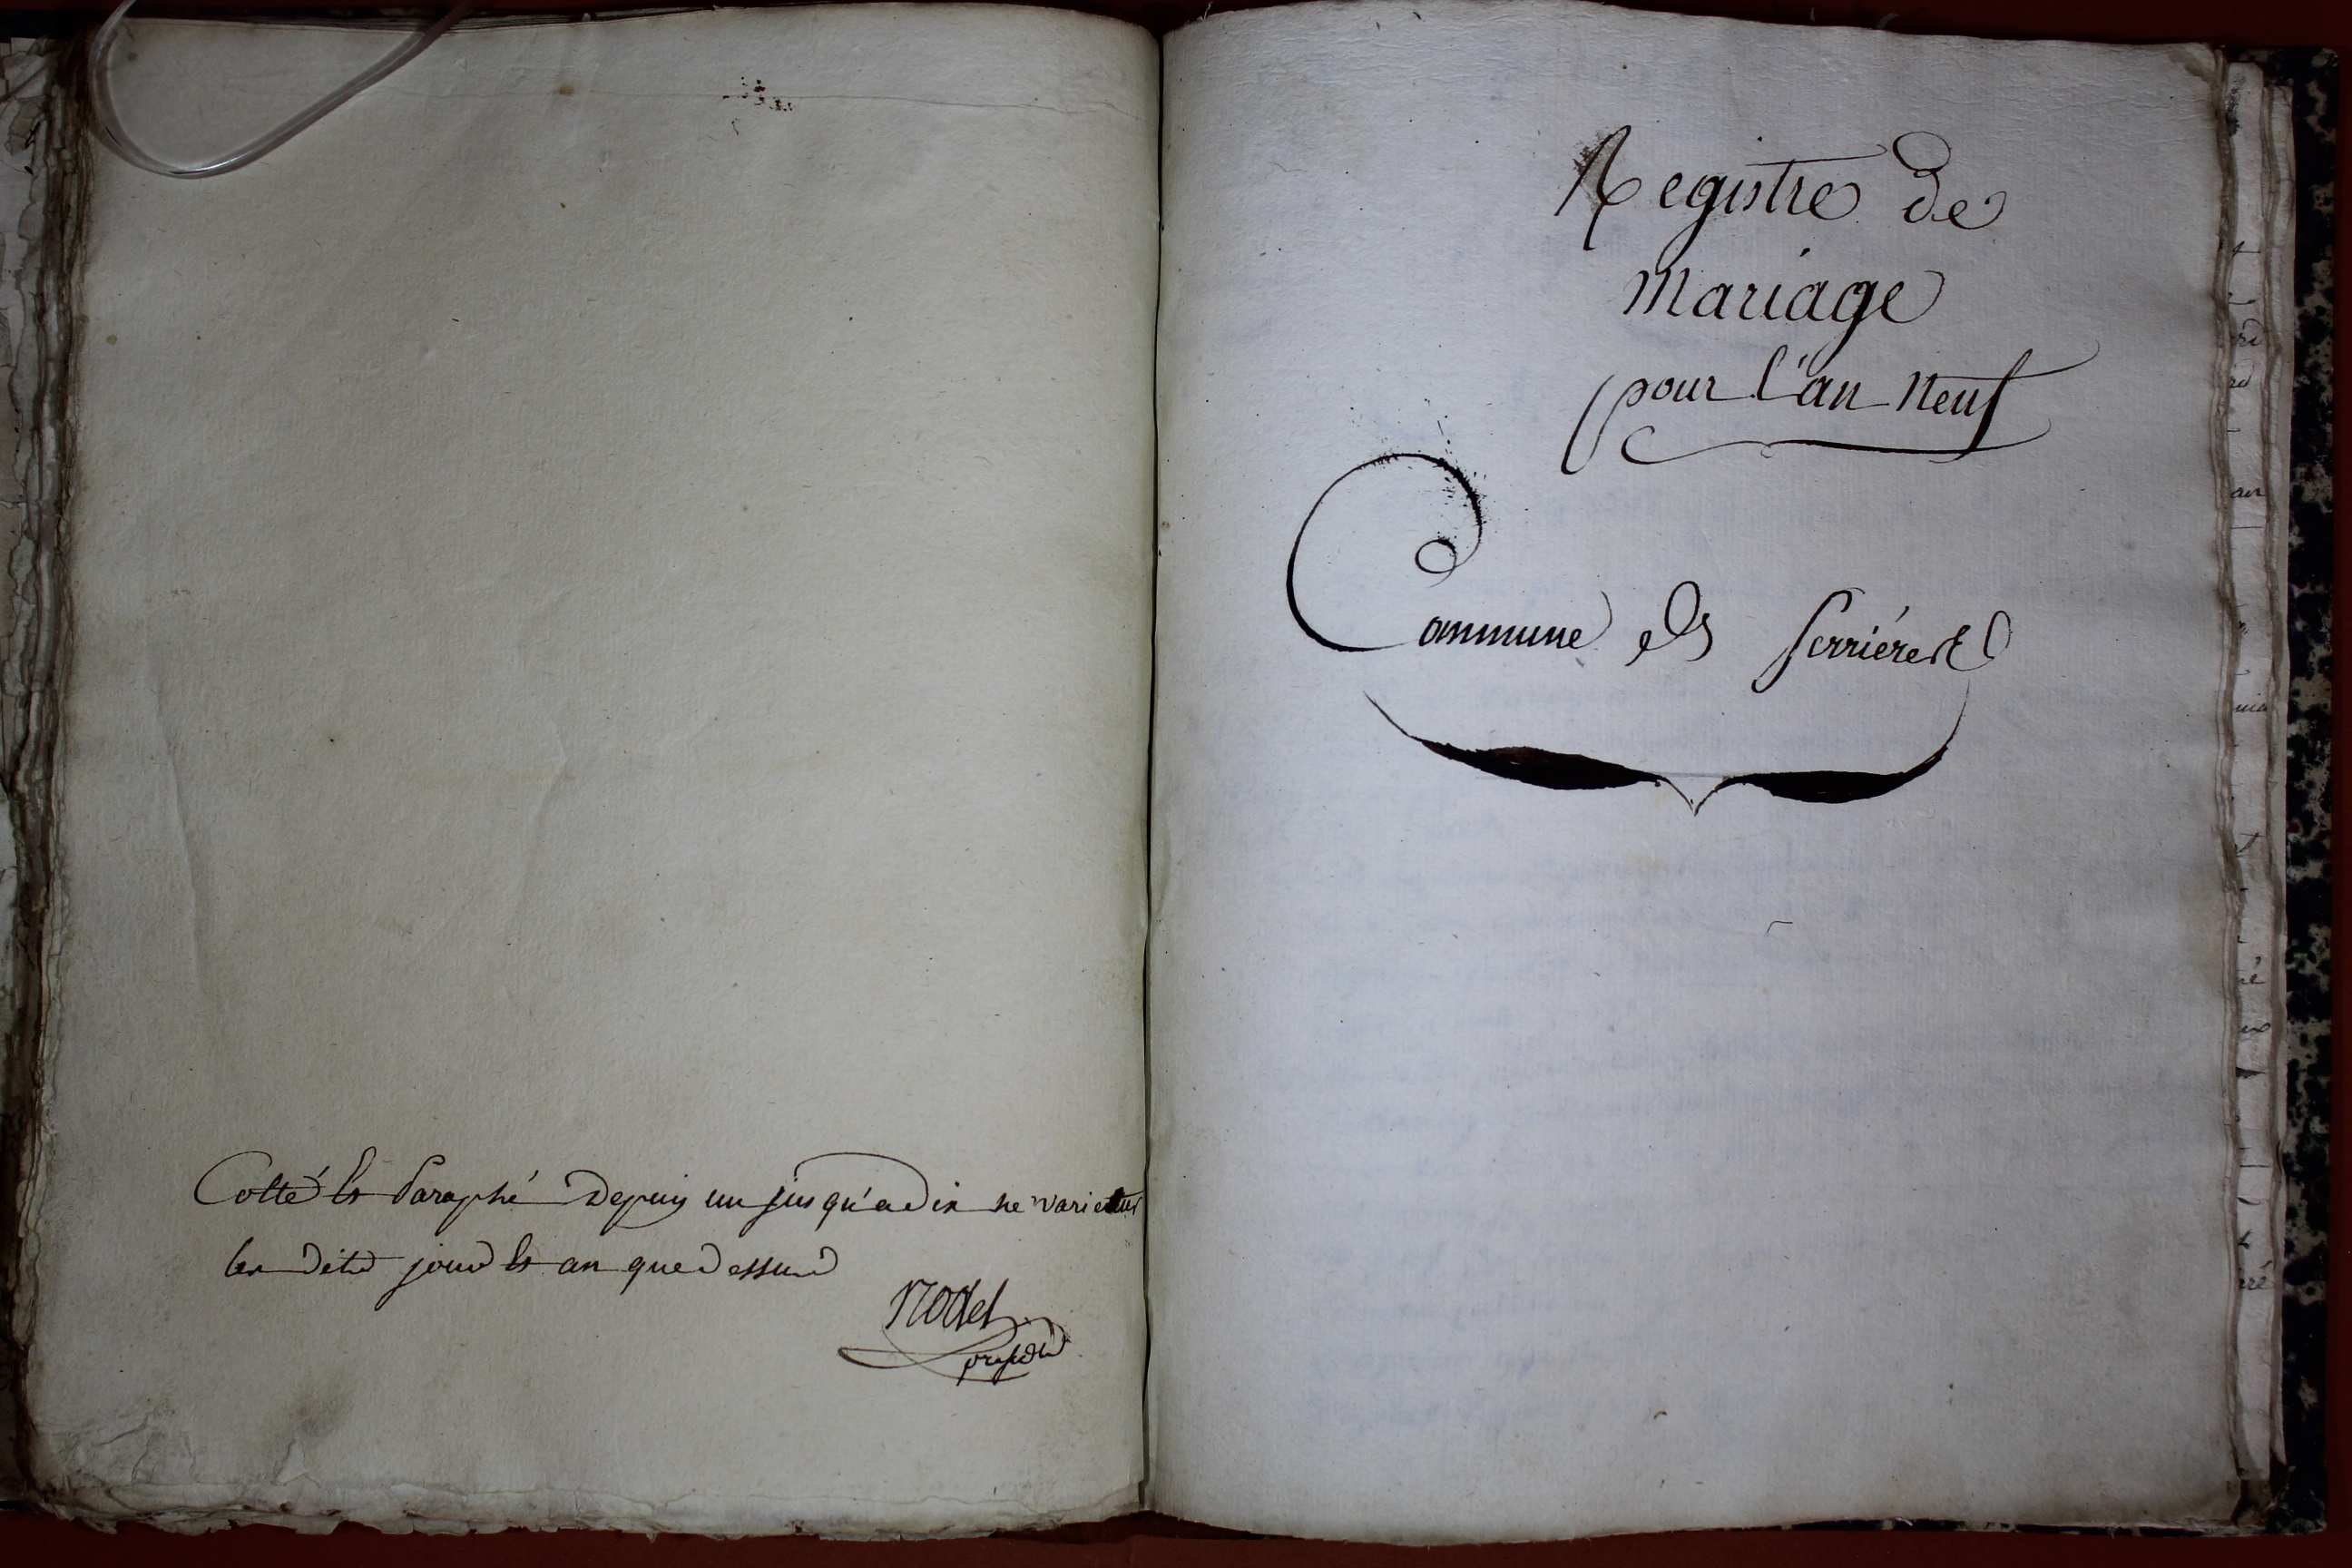 Cotté et Paraphé Depuis un jusqu'a dix ne varietur
les dits jour et an que dessus
Nodet
présidt
Registre de
Mariage
pour l'an Neuf
Commune de Serrières